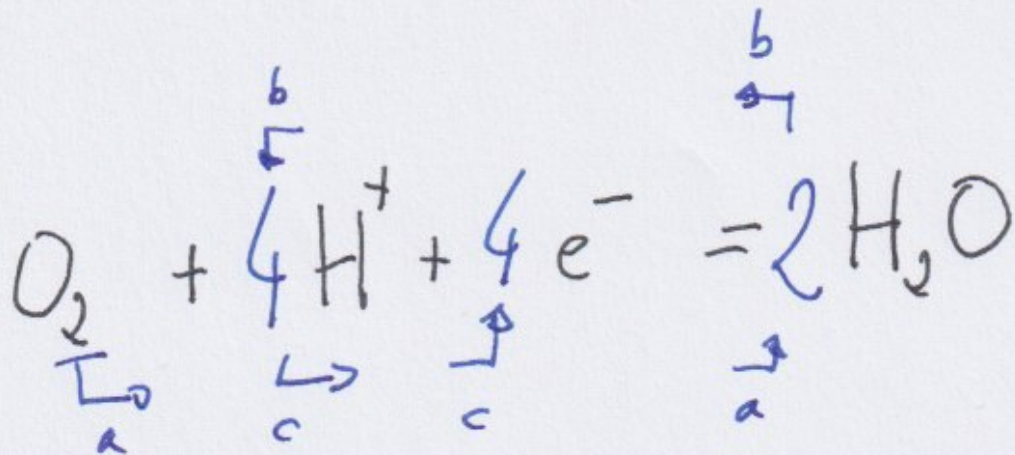 b b
O₂ + 4 H⁺ + 4 e⁻ = 2 H₂O
a c c a